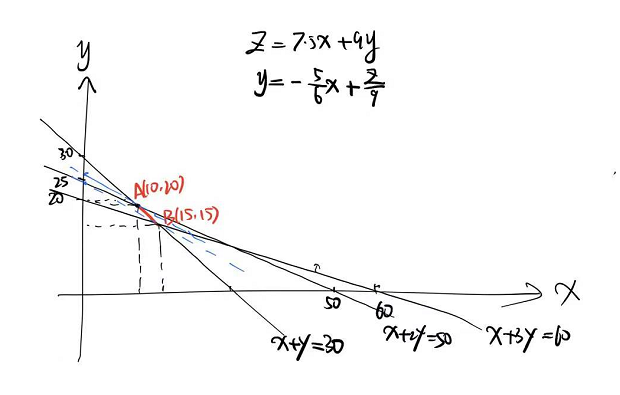 Z=7.5x+9y
y=-5/6x+z/9
y
30
25
20
A(10,20)
B(15,15)
50
60
x
x+y=30
x+2y=50
x+3y=60